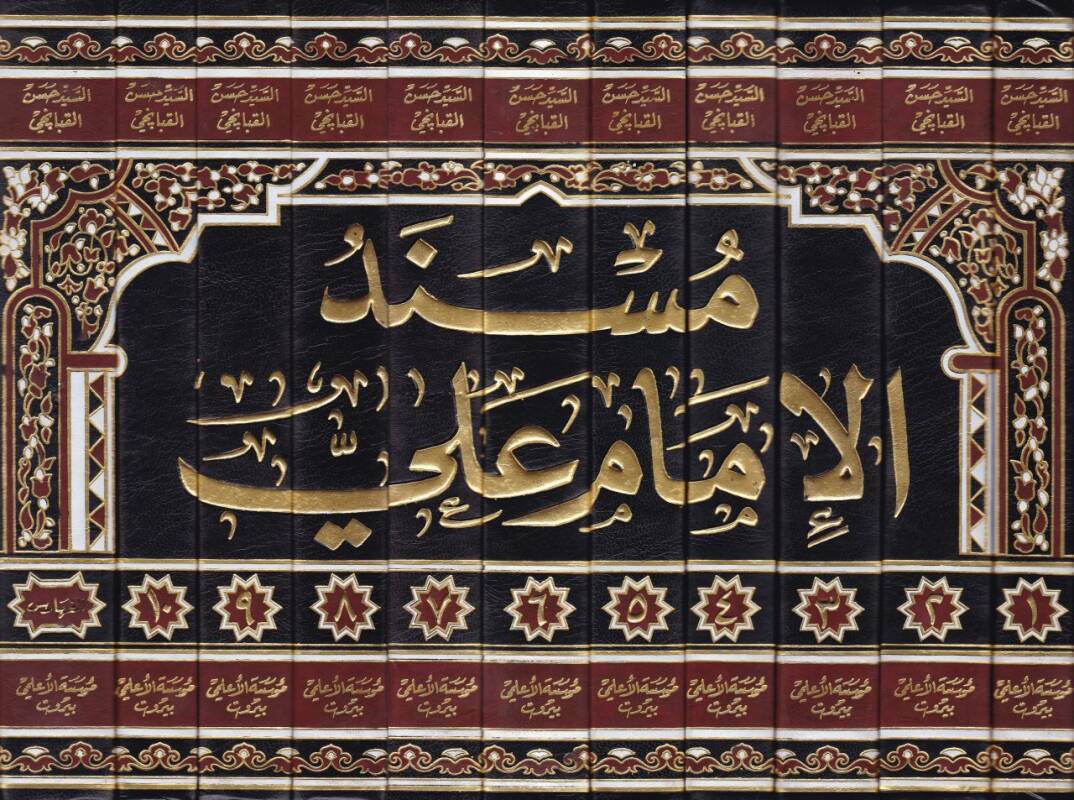 السيد حسن السيد حسن السيد حسن السيد حسن السيد حسن السيد حسن السيد حسن السيد حسن السيد حسن السيد حسن السيد حسن
القبانجي القبانجي القبانجي القبانجي القبانجي القبانجي القبانجي القبانجي القبانجي القبانجي القبانجي
مُسْنَدُ
الإِمَامِ عَلِيٍّ
١ ٢ ٣ ٤ ٥ ٦ ٧ ٨ ٩ ١٠ الفهارس
مؤسسة الأعلمي مؤسسة الأعلمي مؤسسة الأعلمي مؤسسة الأعلمي مؤسسة الأعلمي مؤسسة الأعلمي مؤسسة الأعلمي مؤسسة الأعلمي مؤسسة الأعلمي مؤسسة الأعلمي مؤسسة الأعلمي
بيروت بيروت بيروت بيروت بيروت بيروت بيروت بيروت بيروت بيروت بيروت